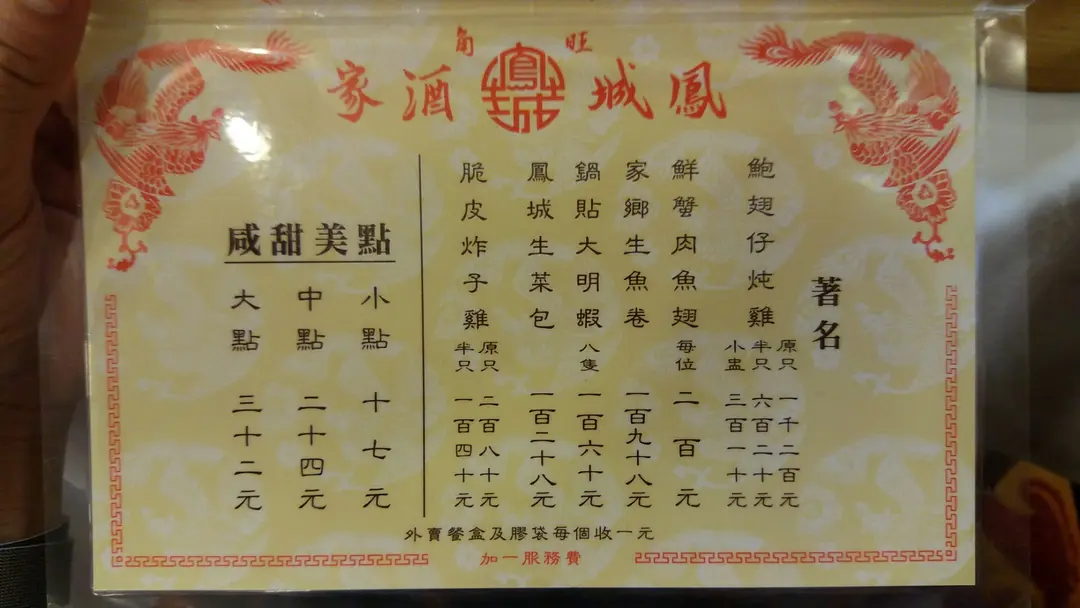 旺角
鳳城酒家
著名
鮑翅仔炖雞
原只 一千二百元
半只 六百二十元
小盅 三百一十元
鮮蟹肉魚翅 每位 二百元
家鄉生魚卷 一百九十八元
鍋貼大明蝦 八隻 一百六十元
鳳城生菜包 一百二十八元
脆皮炸子雞
原只 二百八十元
半只 一百四十元
咸甜美點
小點 十七元
中點 二十四元
大點 三十二元
外賣餐盒及膠袋每個收一元
加一服務費